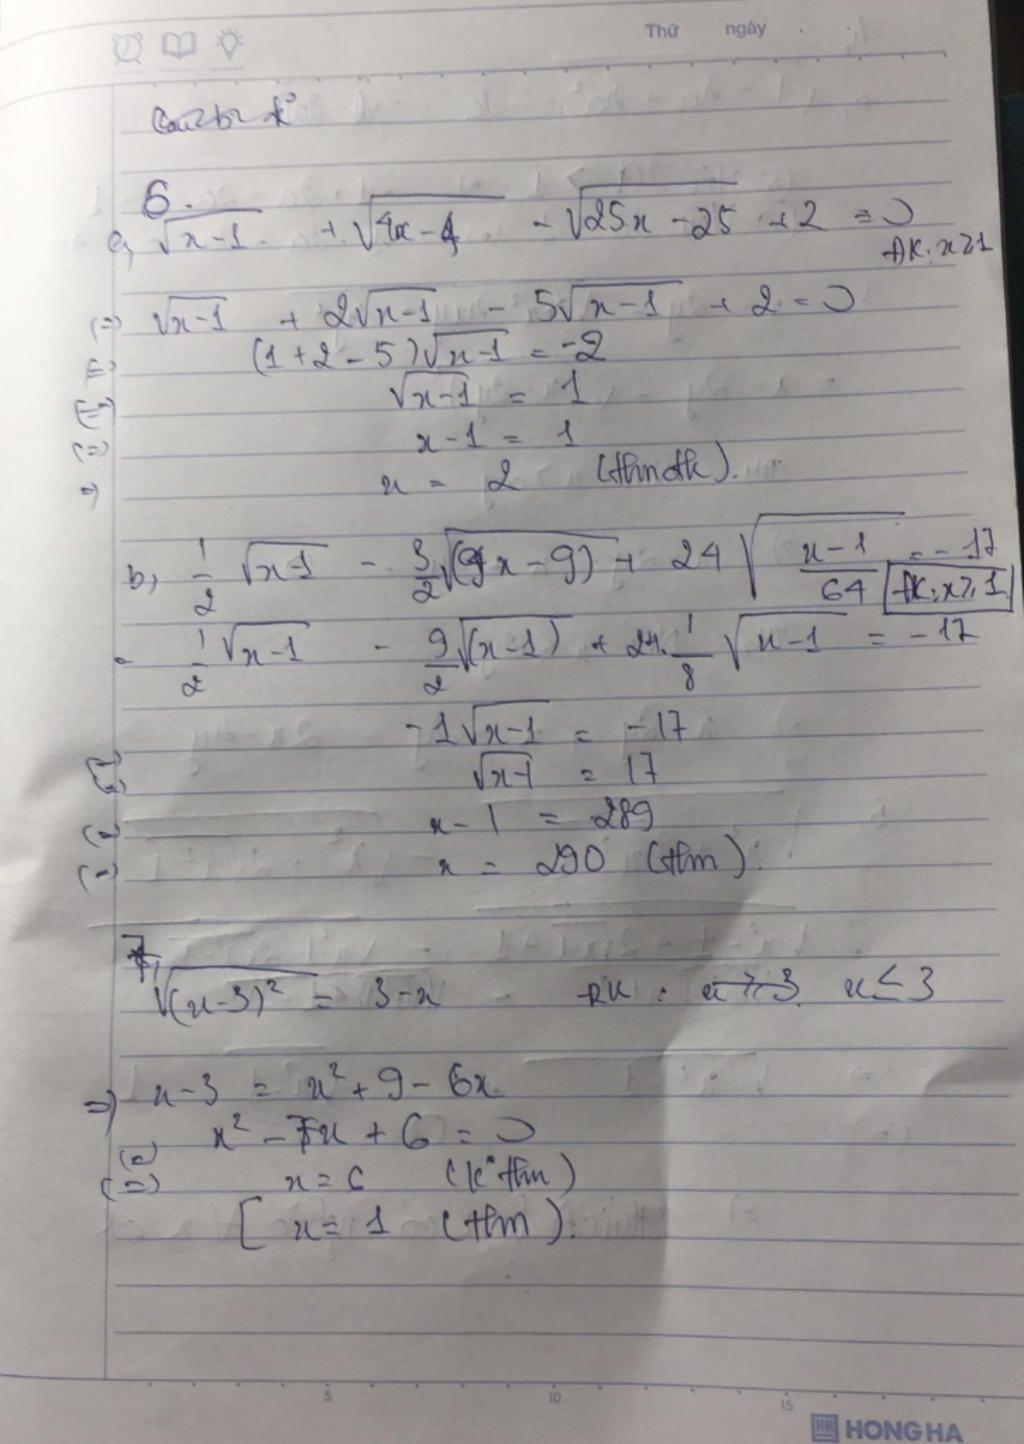 Thứ ngày
6.
a, √(x-1) + √(4x-4) - √(25x-25) + 2 = 0
ĐK: x ≥ 1
(=) √(x-1) + 2√(x-1) - 5√(x-1) + 2 = 0
(=) (1+2-5)√(x-1) = -2
(=) √(x-1) = 1
(=) x-1 = 1
=) x = 2 (thm đk).
b, 1/2 √(x-1) - 3/2 √(9x-9) + 24 √((x-1)/64) = -17
ĐK: x ≥ 1
1/2 √(x-1) - 9/2 √(x-1) + 24. 1/8 √(x-1) = -17
-1√(x-1) = -17
(=) √(x-1) = 17
(=) x-1 = 289
(=) x = 290 (thm).
7,
√((x-3)²) = 3-x ĐK: x ≥ 3 x ≤ 3
=) x-3 = x² + 9 - 6x
(=) x² - 7x + 6 = 0
(=) x = 6 (k° thm)
[ x = 1 (thm).
5 10 15
HH HONG HA